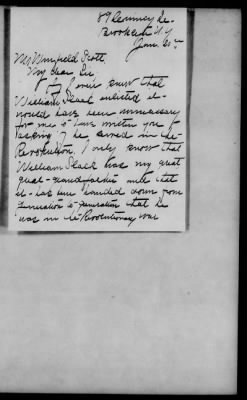 Brooklyn N.Y.
June 20th
Mr Winfield Scott
My dear Sir
If I ever knew that
William Slack enlisted it
would have been unnecessary
for me to have written you
asking if he served in the
Revolution. I only know that
William Slack was my great
great-grandfather and that
it has been handed down from
generation to generation that he
was in the Revolutionary War